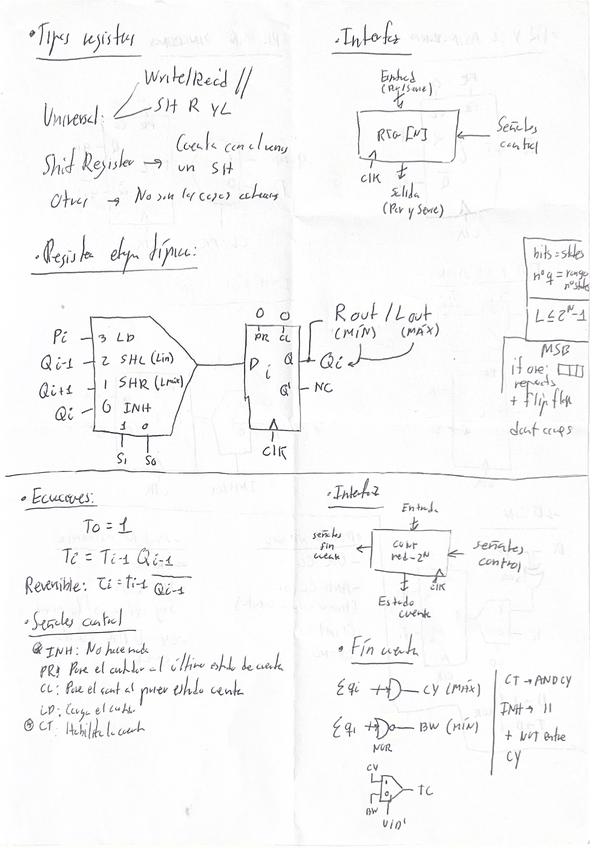 • Tipos registros
Universal:
Write/Read //
SH R y L
Shift Register → Cuenta con al menos
un SH
Otros → No son los casos
• Interfaz
Entrada
(Par/Serie)
REG [N]
Señales
control
ClK
Salida
(Par y Serie)
• Registro etapa típica:
Pi
Qi-1
Qi+1
Qi
3 LD
2 SHL (Lin)
1 SHR (Lmax)
0 INH
1 0
S1 S0
0 0
PR CL
D i Q
Q'
ClK
NC
Rout / Lout
(MÍN) (MÁX)
Qi
bits = states
nº q = range
nº states
L ≤ 2^N-1
MSB
if one:
repeats
+ flip flop
dont
• Ecuaciones:
To = 1
Ti = Ti-1 Qi-1
Reversible: Ti = Ti-1 Qi-1
• Señales control
INH: No hace nada
PR: Pone el contador al último estado de cuenta
CL: Pone el cont al primer estado cuenta
LD: Carga el
CT: Habilita la cuenta
• Interfaz
Entrada
señales
fin
cuenta
cont
red-2^N
señales
control
ClK
Estado
cuenta
• Fin cuenta
Σqi CY (MÁX)
Σqi BW (MÍN)
NOR
CY
BW
TC
U/D'
CT → AND CY
INH → 11
+ NOT entre
CY